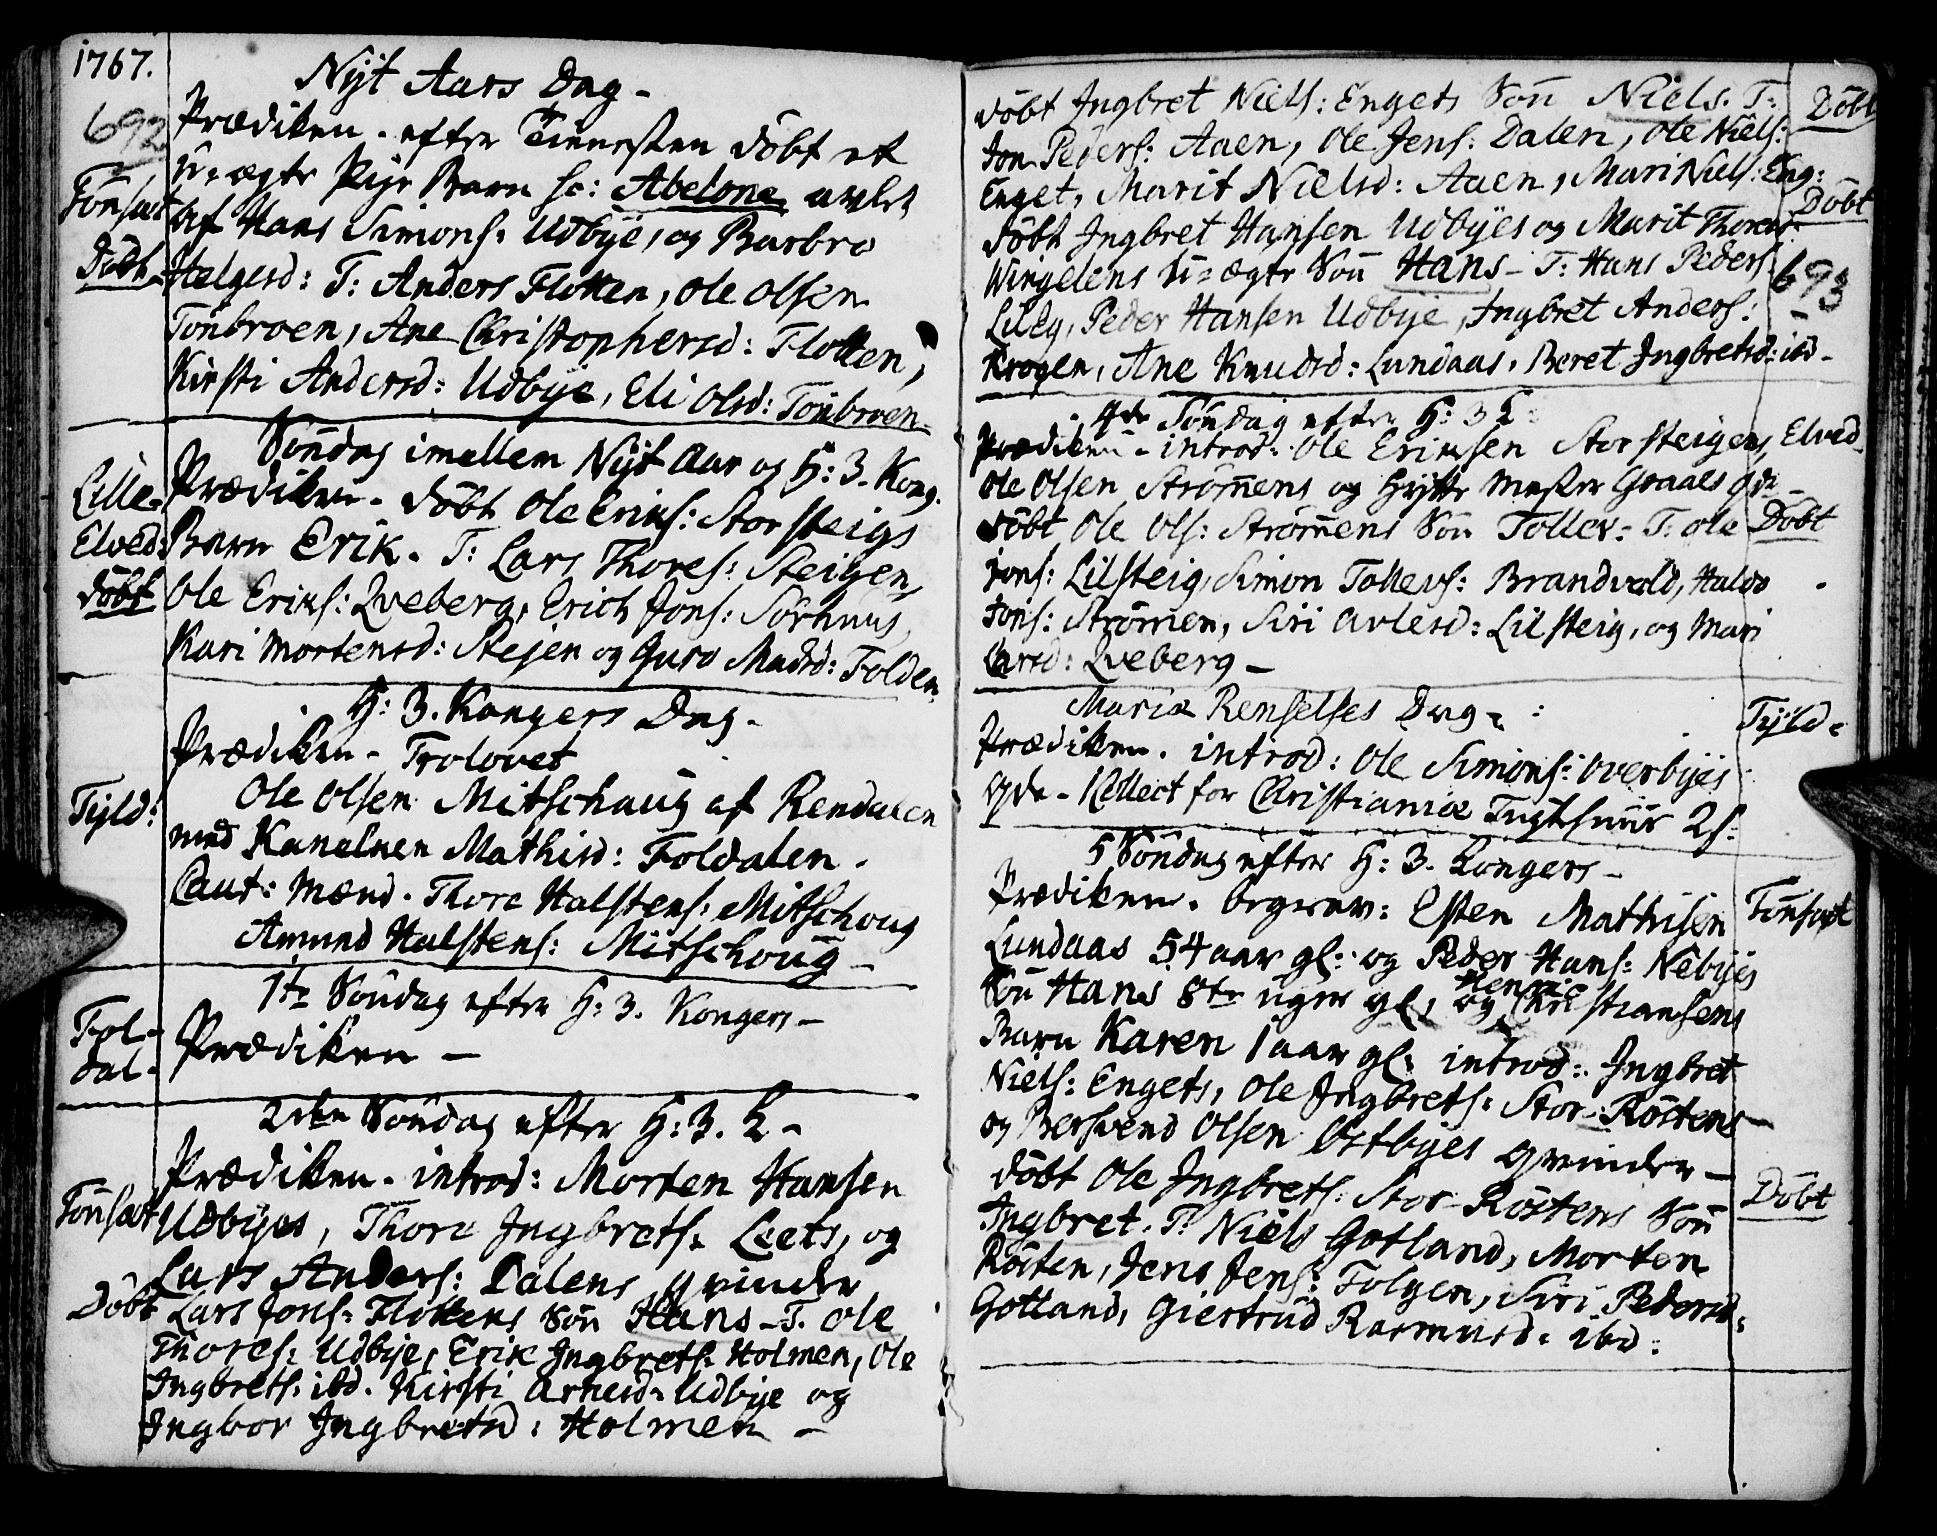 1767.
692
Nÿt Aars Dag -
Prædiken - efter Tienesten döbt et
Tönsæt
u-ægte Pige Barn h: Abelone avlet
af Hans Simons: Udbÿe, og Barbro
Döbt
Helgesd: T: Anders Flotten, ole olsen
Tönbroen, Ane Christophersd: Flotten,
Kirsti Andersd: Udbÿe, Eli olsd: Tönbroen-
Söndag imellem Nÿt Aar og H: 3. Kong.
Lille-
Elved:
döbt
Prædiken - döbt Ole Eriks: Storsteigs
Barn Erik - T: Lars Thores: Steigen,
Ole Eriks: Qveberg, Erich Jons: Sörhuus
Kari Mortensd: Stejen og Guro Madsd: Folden
H: 3. Kongers Dag -
Prædiken - Trolovet
Tÿld:
Ole olsen Mitschaug af Rendalen
med Kanalnen Mathisd: Foldalen -
Caut: Mænd. Thore Halstens: Mitschoug
Amund Halstens: Mitschoug -
1te Söndag efter H: 3. Kongers -
Fol-
dal-
Prædiken -
2den Söndag efter H: 3. K -
Prædiken - introd: Morten Hansen
Tönsæt
Udbÿes, Thore Jngbrets: Leets, og
Lars Anders: Dalens qvinder
Döbt Lars Jons: Flottens Sön Hans - T. ole
Thores: Udbÿe, Erik Jngbrets: Holmen, ole
Jngbrets: ibd. Kirsti Arnesd: Udbÿe og
Jngbor Jngbretsd: Holmen -
döbt Jngbret Niels: Engets Sön Niels. T:
Döbt
Jon Peders: Aaen, ole Jens: Dalen, ole Niels:
Enget, Marit Nielsd: Aaen, Mari Niels: Eng:
döbt Jngbret Hansen Udbÿes og Marit Thoresd:
Döbt
Wingelens u-ægte Sön Hans - T: Hans Peders:
693
Lileg, Peder Hansen Udbÿe, Jngbret Anders:
Krogen, Ane Knudsd: Lundaas. Beret Jngbretsd: ibd -
4de Söndag efter H: 3 K:
Prædiken - introd: Ole Eriksen Storsteigens, Elved-
Ole Olsen Strömens og Hytte Mester Graaes qde
döbt Ole Ols: Strömens Sön Toller - T: ole
Döbt
Jons: Lilsteig, Simon Tollevs: Brandvold, Haldo
Jons: Strömen, Siri Arlesd: Lilsteig, og Mari
Larsd: Qveberg -
Mariæ Renselses Dag -
Tÿld-
Prædiken. introd: Ole Simons: overbÿes
qde - Collect for Christianiæ Tugthuus 2 s:
5 Söndag efter H: 3. Kongers -
Prædiken. begrav: Esten Mathisen
Tönsæt
Lundaas 54 aar gl: og Peder Hans: Nebÿes
Sön Hans 8te uger gl, og Henric Christiansens
Barn Karen 1 aar gl: introd: Jngbret
Niels: Engets, Ole Jngbrets: Stor-Röstens
og Bersvend Olsen Östbÿes qvinder -
döbt Ole Jngbrets: Stor-Röstens Sön
Döbt
Jngbret. T: Niels Gotland, Morten
Rösten, Jens Jens: Tolgen, Siri Pedersd:
Gotland, Giertrud Rasmusd: ibd: